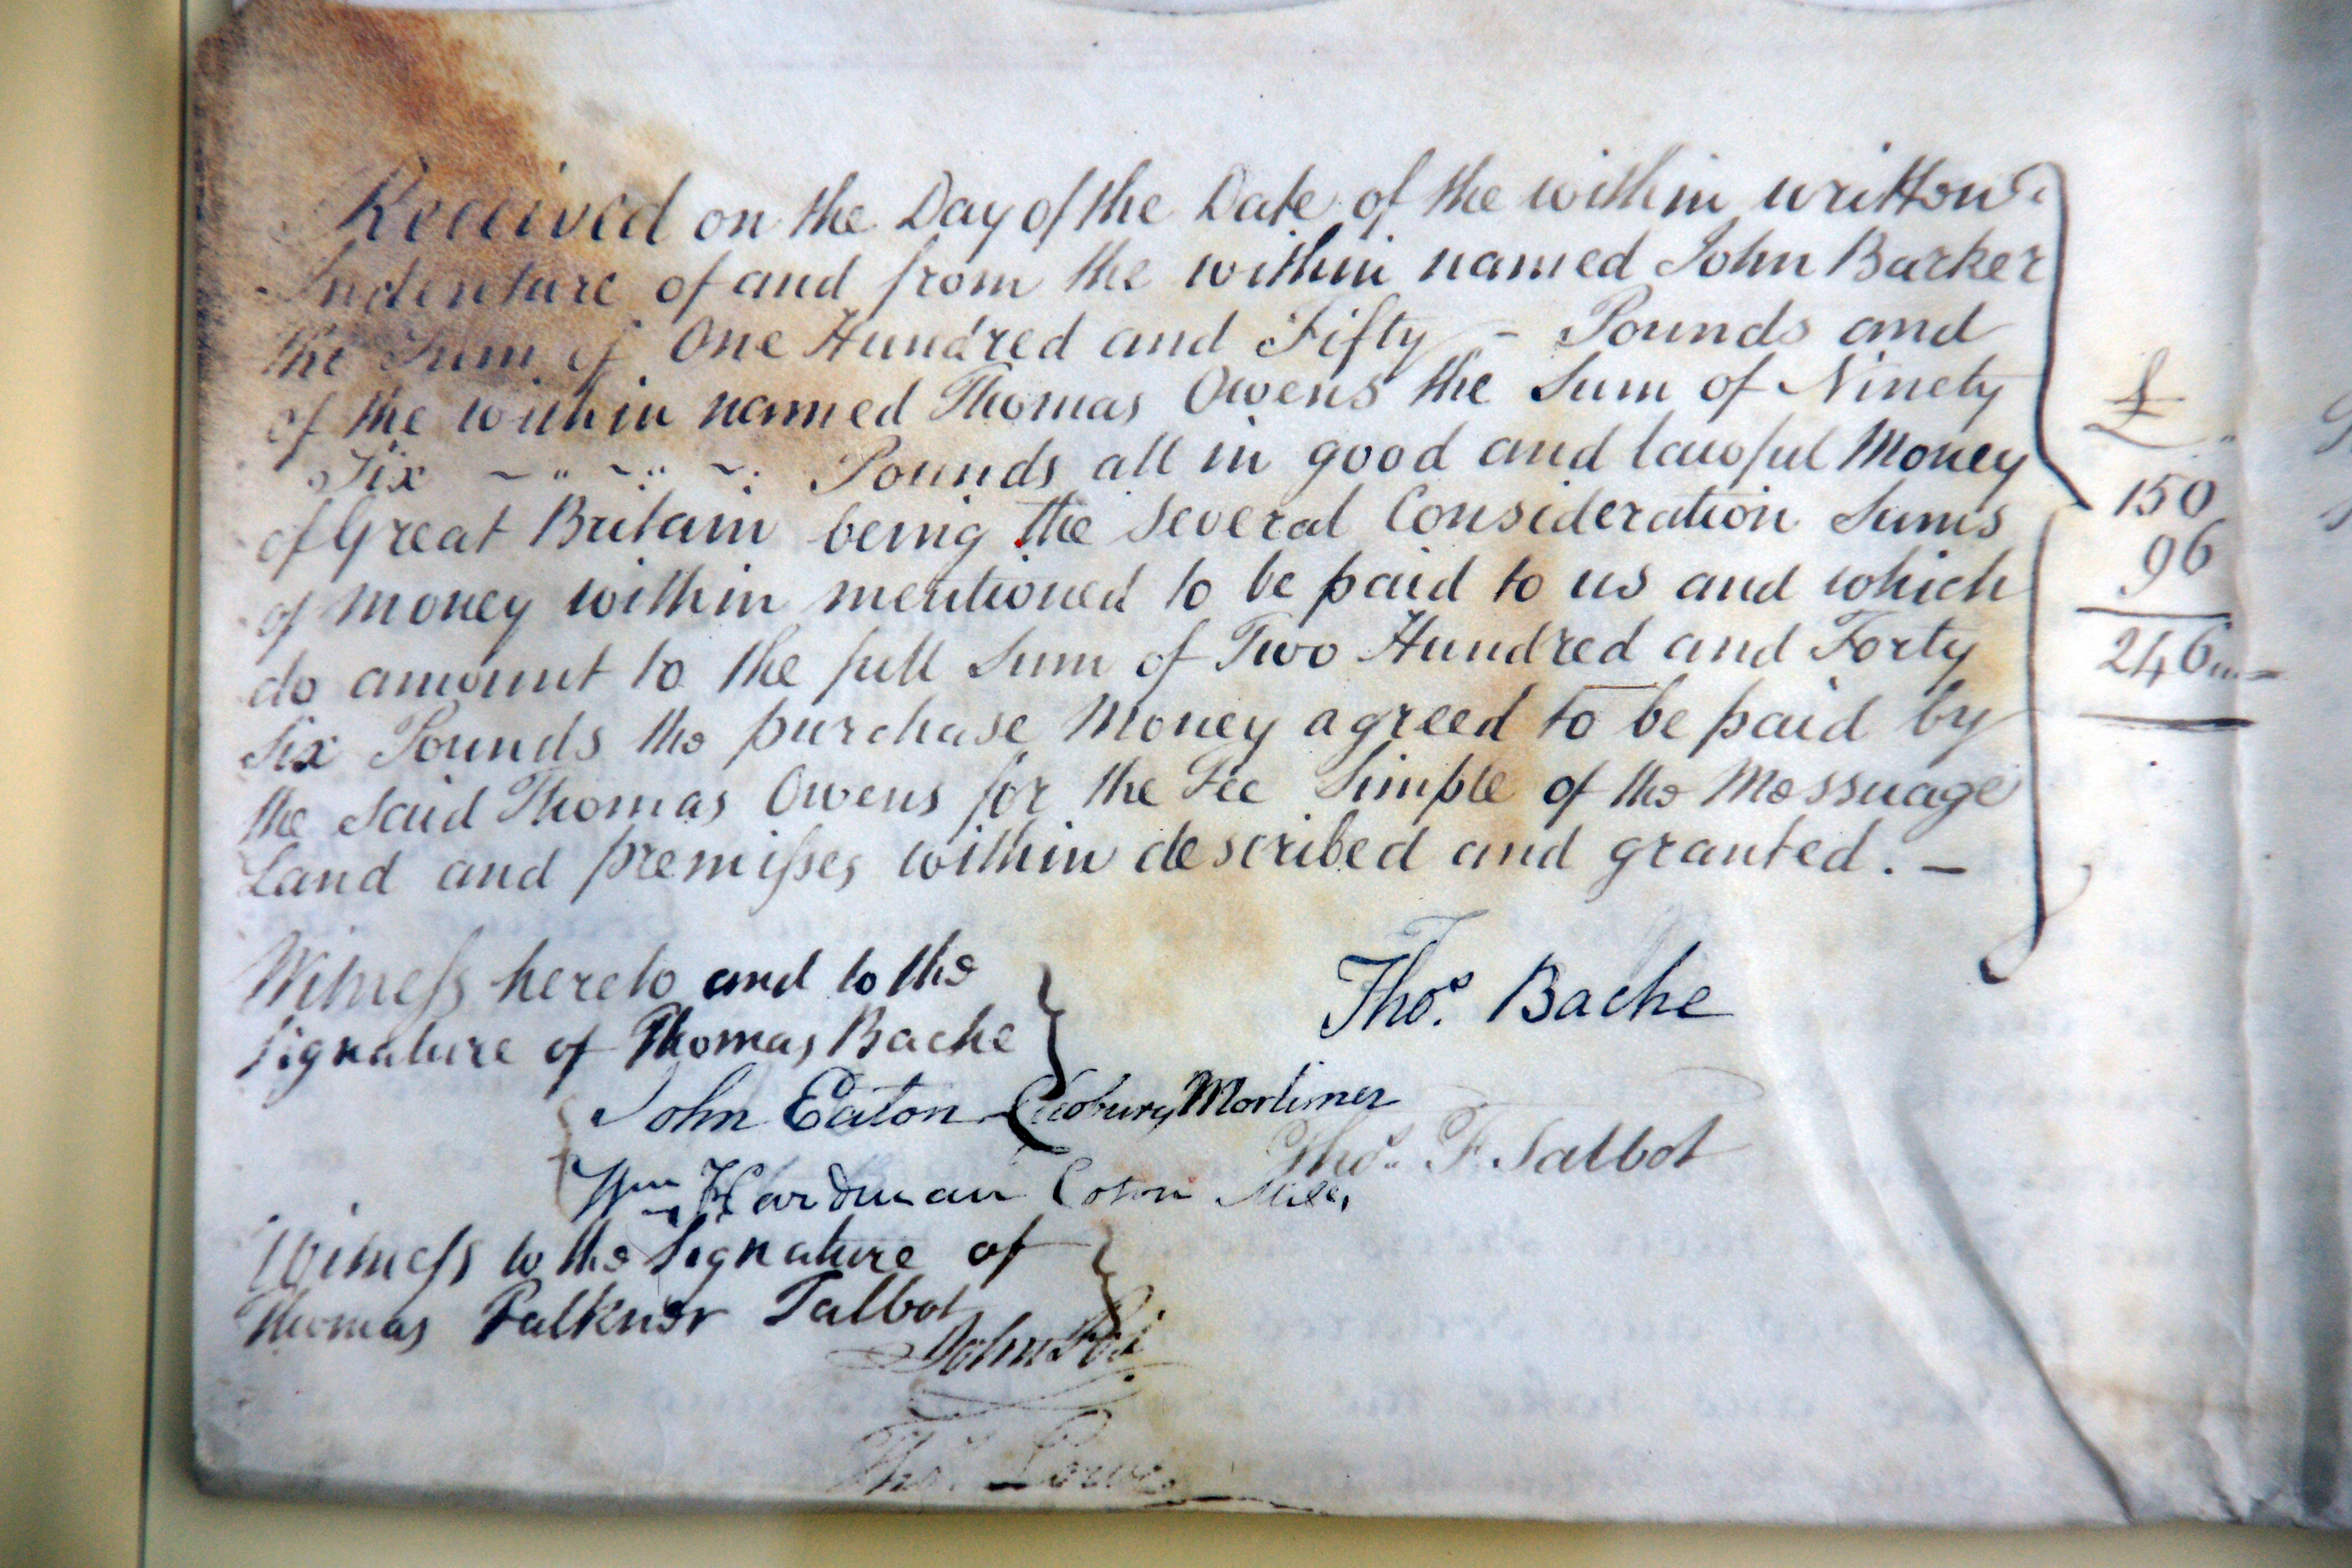 Received on the Day of the Date of the within written
Indenture of and from the within named John Barker
the Sum of One Hundred and Fifty - Pounds and
of the within named Thomas Owens the Sum of Ninety
Six Pounds all in good and lawful Money
of Great Britain being the several Consideration Sums
of money within mentioned to be paid to us and which
do amount to the full Sum of Two Hundred and Forty
Six Pounds the purchase Money agreed to be paid by
the said Thomas Owens for the Fee Simple of the Messuage
Land and premiſses within described and granted. -
£
150
96
246
Witneſs hereto and to the
signature of Thomas Bache
Thos. Bache
John Eaton Cleobury Mortimer
Thos. F. Talbot
Wm Hardman
Witneſs to the Signature of
Thomas Falkner Talbot
John
Thos. Lowe